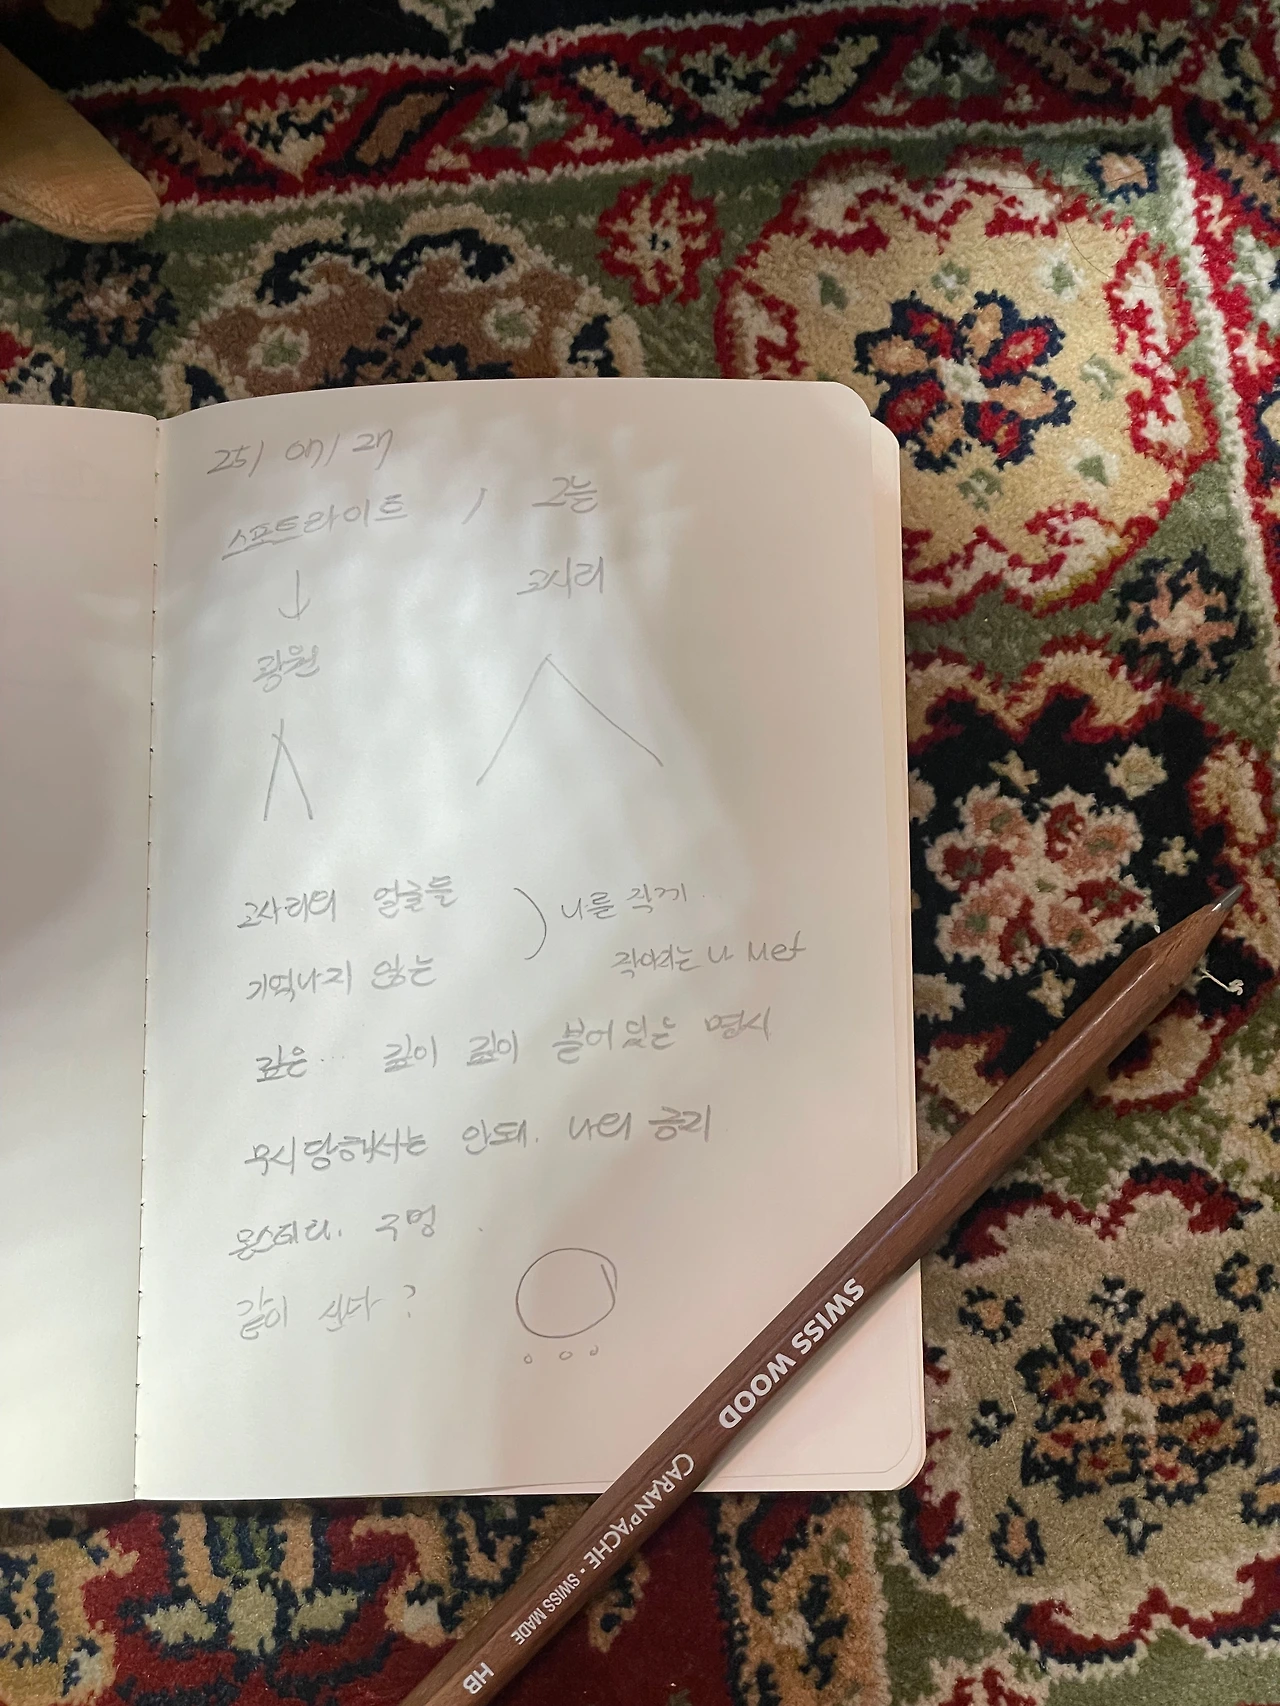 25/ 07/ 27
스포트라이트 / 그늘
↓ 고사리
광원
고사리의 얼굴들 ) 나를 작게.
기억나지 않는 작아지는 나 Met
깊은... 깊이 깊이 붙어있는 명시
무시당해서는 안돼. 나의 승리
몬스테라. 구멍.
같이 산다?
SWISS WOOD CARAN D'ACHE • SWISS MADE HB